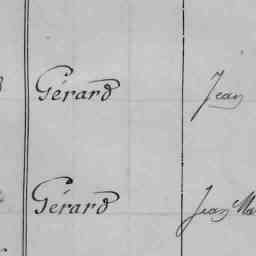 Gérard Jean
Gérard Jean